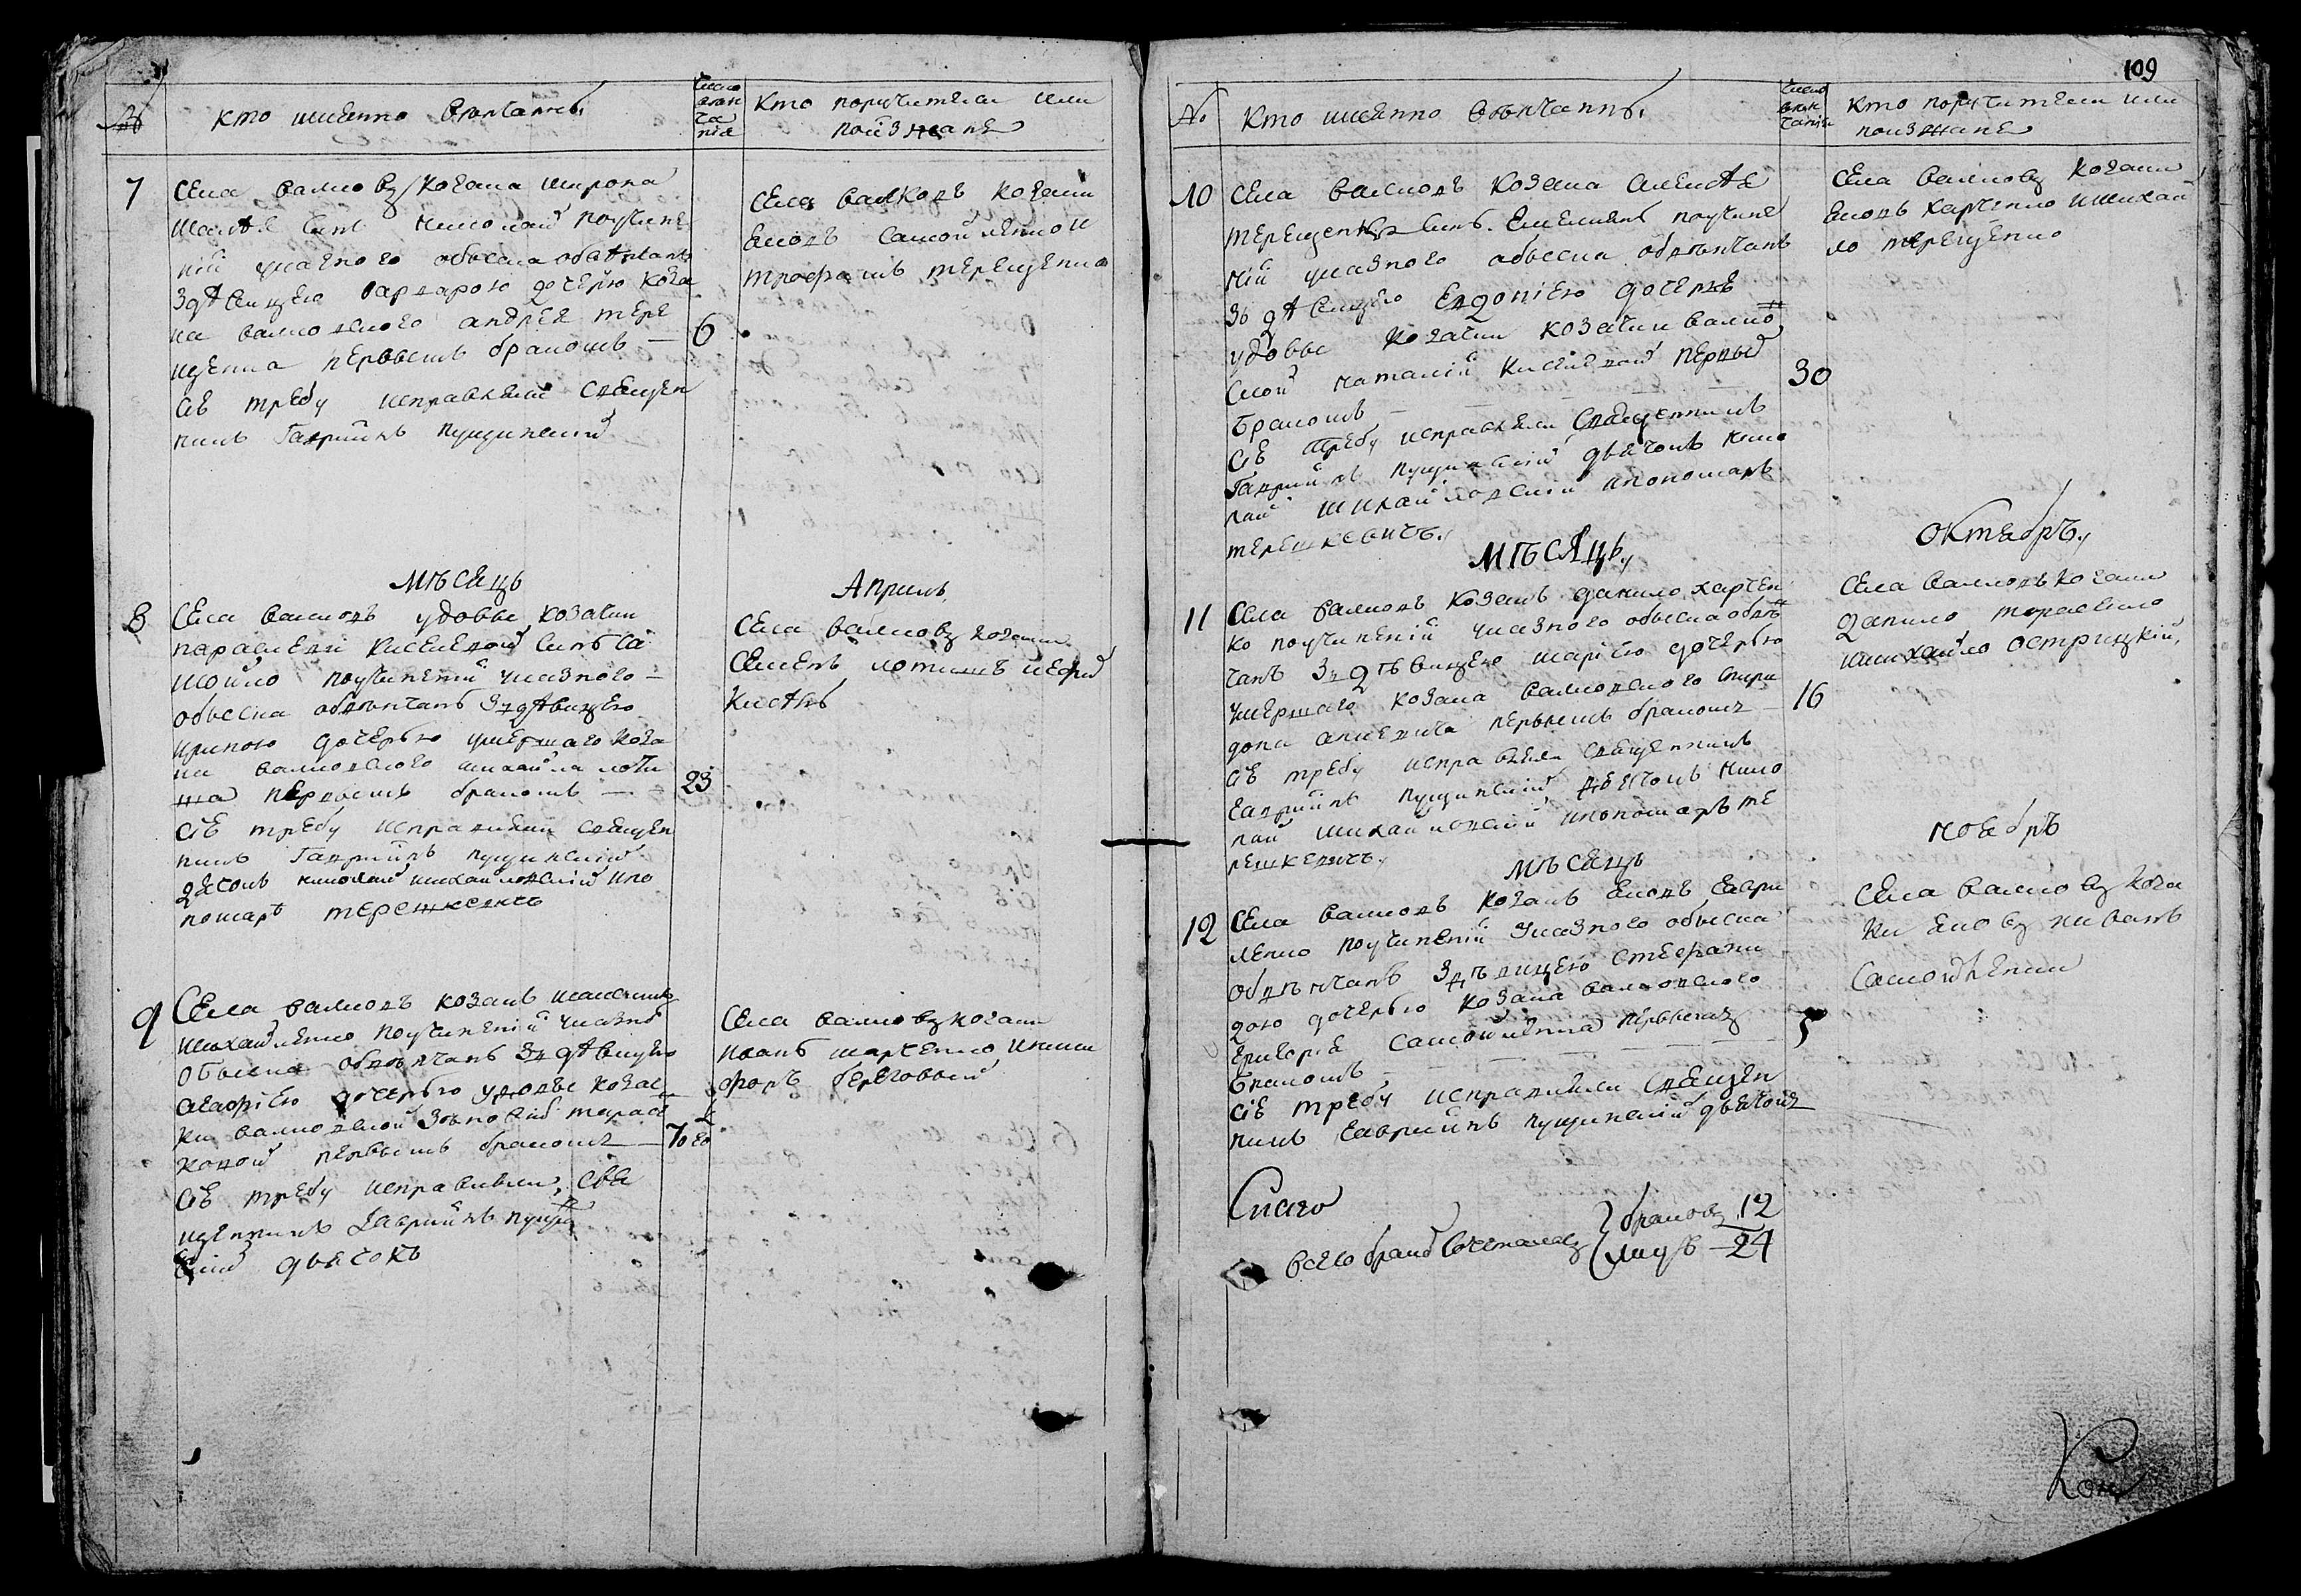 №
кто именно венчанъ.
Число
венч
ча
нія
кто поручители или
поизжане
7
Села Валковъ козака Мирона
сынъ Николай по учине
ніи указного обыска обвѣнчанъ
здѣвицею Варварою дочерю коза
ка валковского Андрея Тере
щенка первымъ бракомъ —
6
Сіе требу исправляли священ
никъ Гавріилъ Пущинскій
Села Валковъ козаки
Яковъ Самойленко и
Трофимъ Терещенко
Мѣсяцъ
Априль
8
Села Валковъ удовы козачки
Параскеви Киселевой синъ Са
мойло по учиненіи указного —
обыска обвѣнчанъ здѣвицею
Ириною дочерью умершаго коза
ка валковского Михайла Лоти
ша первымъ бракомъ —
23
Сіе требу исправляли священ
никъ Гавріилъ Пущинскій
дячокъ Николай Михайловскій и по
номарь Терешкевичъ
Села Валковъ козаки
Семенъ Лотишъ и
9
Села Валковъ козакъ
Михайленко по учиненіи указного
обыска обвѣнчанъ здѣвицею
дочерью удовы козач
ки валковской Зѣновіи Тарасе
ковой первымъ бракомъ —
Сіе требу исправляли свя
щенникъ Гавріилъ Пущин
скій дьячокъ
Села Валковъ козаки
Иванъ Марченко и Ники
форъ Береговый
109
№
кто именно вѣнчанъ.
Число
венч
чанія
кто поручители или
поизжане
10
Села Валковъ козака Алексѣя
Терещенка синъ Емельянъ по учине
ніи указного обыска обвѣнчанъ
зъ дѣвицею Евдокіею дочерью
удовы козачки козачки валков
ской Наталіи Киселевой первый
бракомъ —
30
Сіе требу исправляли священникъ
Гавріилъ Пущинскій дьячокъ Нико
лай Михайловскій и пономарь
Терешкевичъ.
Села Валковъ козаки
Яковъ Харченко и Михай
ло Терещенко
Мѣсяцъ
Октябрь
11
Села Валковъ козакъ Данило Харчен
ко по учиненіи указного обыска обвѣ
чанъ з дѣвицею Маріею дочерью
умершаго козака валковского Спири
дона первымъ бракомъ —
16
Сіе требу исправляли священникъ
Гавріилъ Пущинскій дьячокъ Нико
лай Михайловскій и пономарь Те
решкевичъ.
Села Валковъ козаки
Данило Тарасенко
и Михайло Острицкій
Мѣсяцъ
Ноябрь
12
Села Валковъ козакъ Яковъ Гаври
ленко по учиненіи указного обыска
обвѣнчанъ здѣвицею Стефани
дою дочерью козака валковского
Григорія Самойленка первымъ
бракомъ —
5
Сіе требу исправляли священ
никъ Гавріилъ Пущинскій дьячокъ
Села Валковъ коза
ки Яковъ и Иванъ
Самойленки
всего бракосочетались
браковъ 12
лицъ — 24